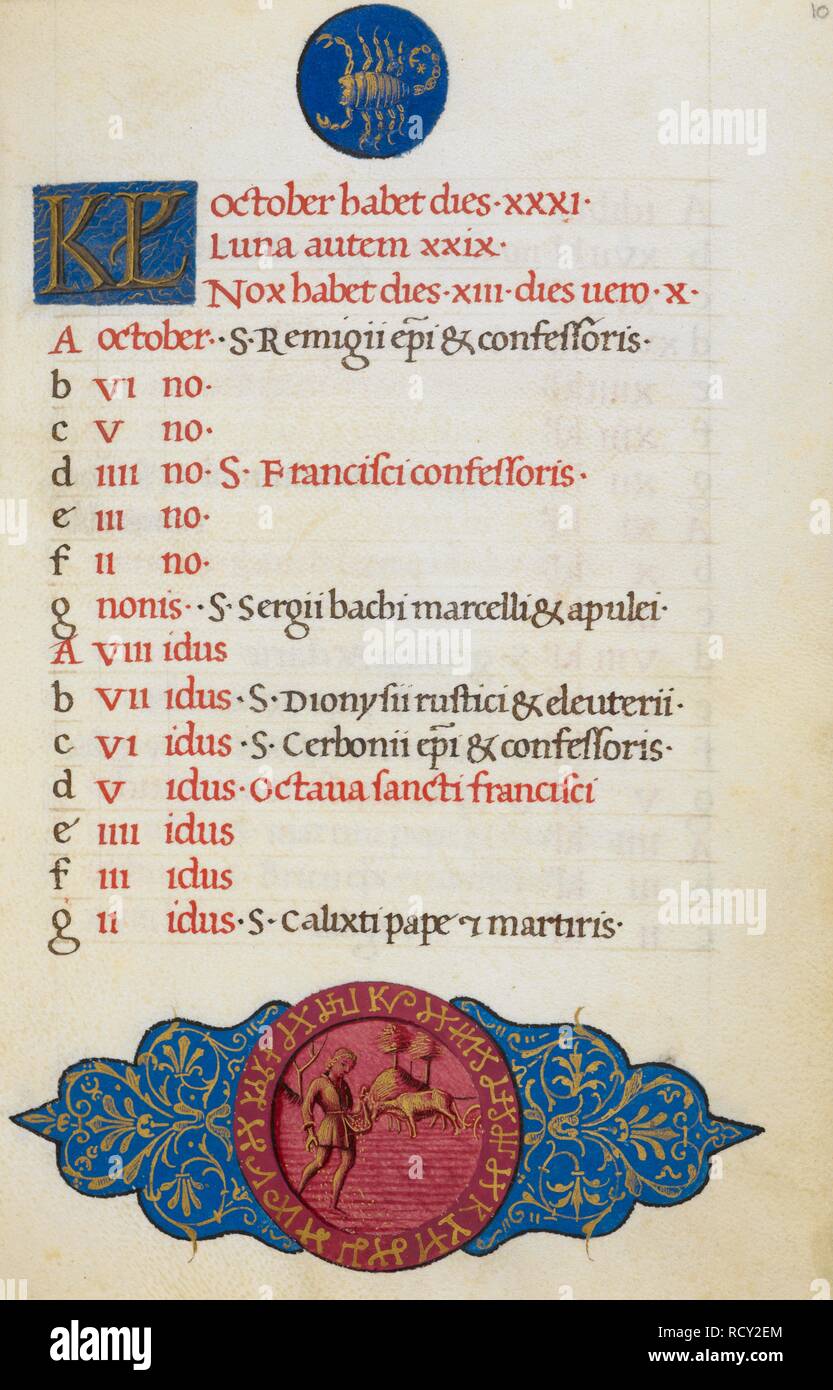 10
KL
october habet dies·xxxı·
Luna autem xxıx·
Nox habet dies·xııı·dies uero·x·
A october··S·Remigii ep̄i & confeſſoris·
b vı no·
c v no·
d ıııı no· S· Franciſci confeſſoris·
e ııı no·
f ıı no·
g nonis··S·Sergii bachi marcelli & apulei·
A vııı idus
b vıı idus·S·Dionyſii ruſtici & eleuterii·
c vı idus·S·Cerbonii ep̄i & confeſſoris·
d v idus·Octaua ſancti franciſci
e ıııı idus
f ııı idus
g ıı idus·S·Calixti pape ⁊ martiris·
alamy
www.alamy.com
Image ID: RCY2EM